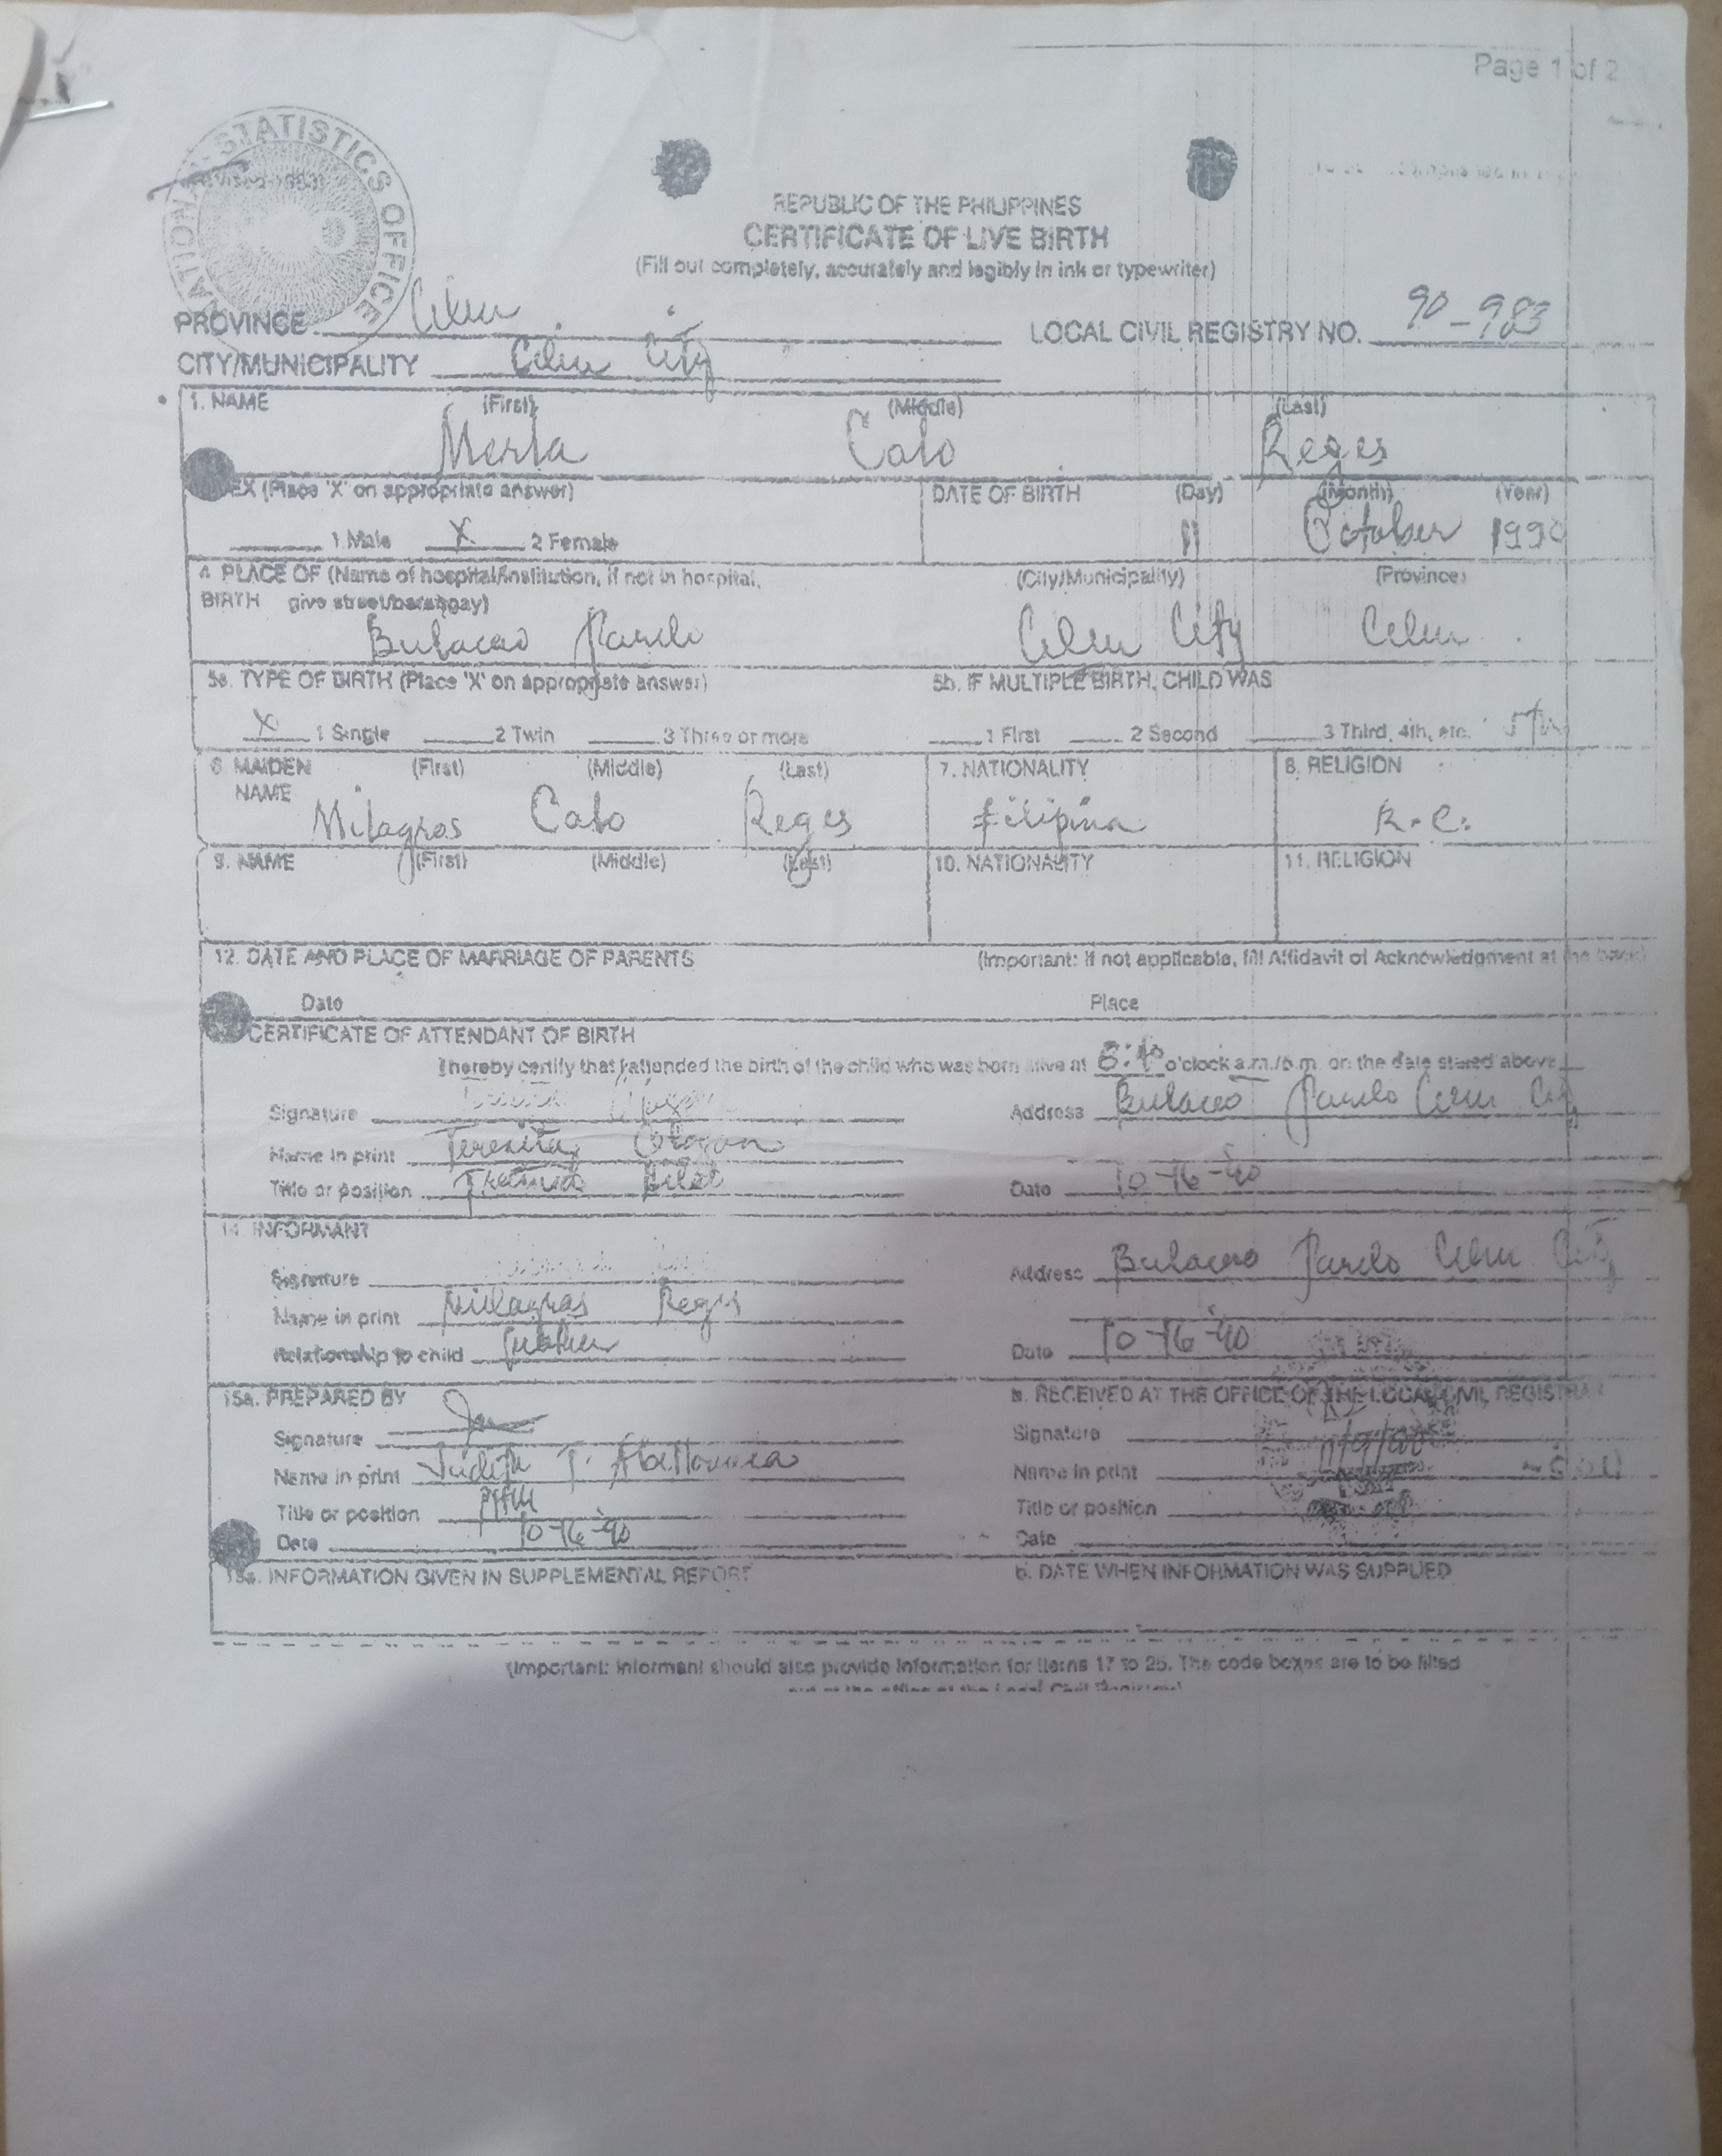 Page 1 of 2
NATIONAL STATISTICS OFFICE
REPUBLIC OF THE PHILIPPINES
CERTIFICATE OF LIVE BIRTH
(Fill out completely, accurately and legibly in ink or typewriter)
PROVINCE Cebu LOCAL CIVIL REGISTRY NO. 90-983
CITY/MUNICIPALITY Cebu City
1. NAME (First) (Middle) (Last)
Merla Cato Reges
EX (Place 'X' on appropriate answer) DATE OF BIRTH (Day) (Month) (Year)
1 Male X 2 Female 11 October 1990
4. PLACE OF (Name of hospital/institution, if not in hospital, (City/Municipality) (Province)
BIRTH give street/barangay)
Bulacao Pardo Cebu City Cebu
5a. TYPE OF BIRTH (Place 'X' on appropriate answer) 5b. IF MULTIPLE BIRTH, CHILD WAS
X 1 Single 2 Twin 3 Three or more 1 First 2 Second 3 Third, 4th, etc. 5th
6. MAIDEN (First) (Middle) (Last) 7. NATIONALITY 8. RELIGION
NAME Milagros Cato Reges filipina R.C.
9. NAME (First) (Middle) (Last) 10. NATIONALITY 11. RELIGION
12. DATE AND PLACE OF MARRIAGE OF PARENTS (Important: If not applicable, fill Affidavit of Acknowledgment at the back)
Date Place
CERTIFICATE OF ATTENDANT OF BIRTH
I hereby certify that I attended the birth of the child who was born alive at o'clock a.m./p.m. on the date stated above
Signature Address Bulacao Pardo Cebu City
Name in print Teresita
Title or position Trained Hilot Date 10-16-90
14. INFORMANT
Signature Address Bulacao Pardo Cebu City
Name in print Milagros Reges
Relationship to child Mother Date 10-16-90
15a. PREPARED BY b. RECEIVED AT THE OFFICE OF THE LOCAL CIVIL REGISTRAR
Signature Signature
Name in print Judith T. Abellanosa Name in print
Title or position Title or position
Date 10-16-90 Date
16a. INFORMATION GIVEN IN SUPPLEMENTAL REPORT b. DATE WHEN INFORMATION WAS SUPPLIED
(Important: Informant should also provide information for items 17 to 25. The code boxes are to be filled
out at the office of the Local Civil Registrar)